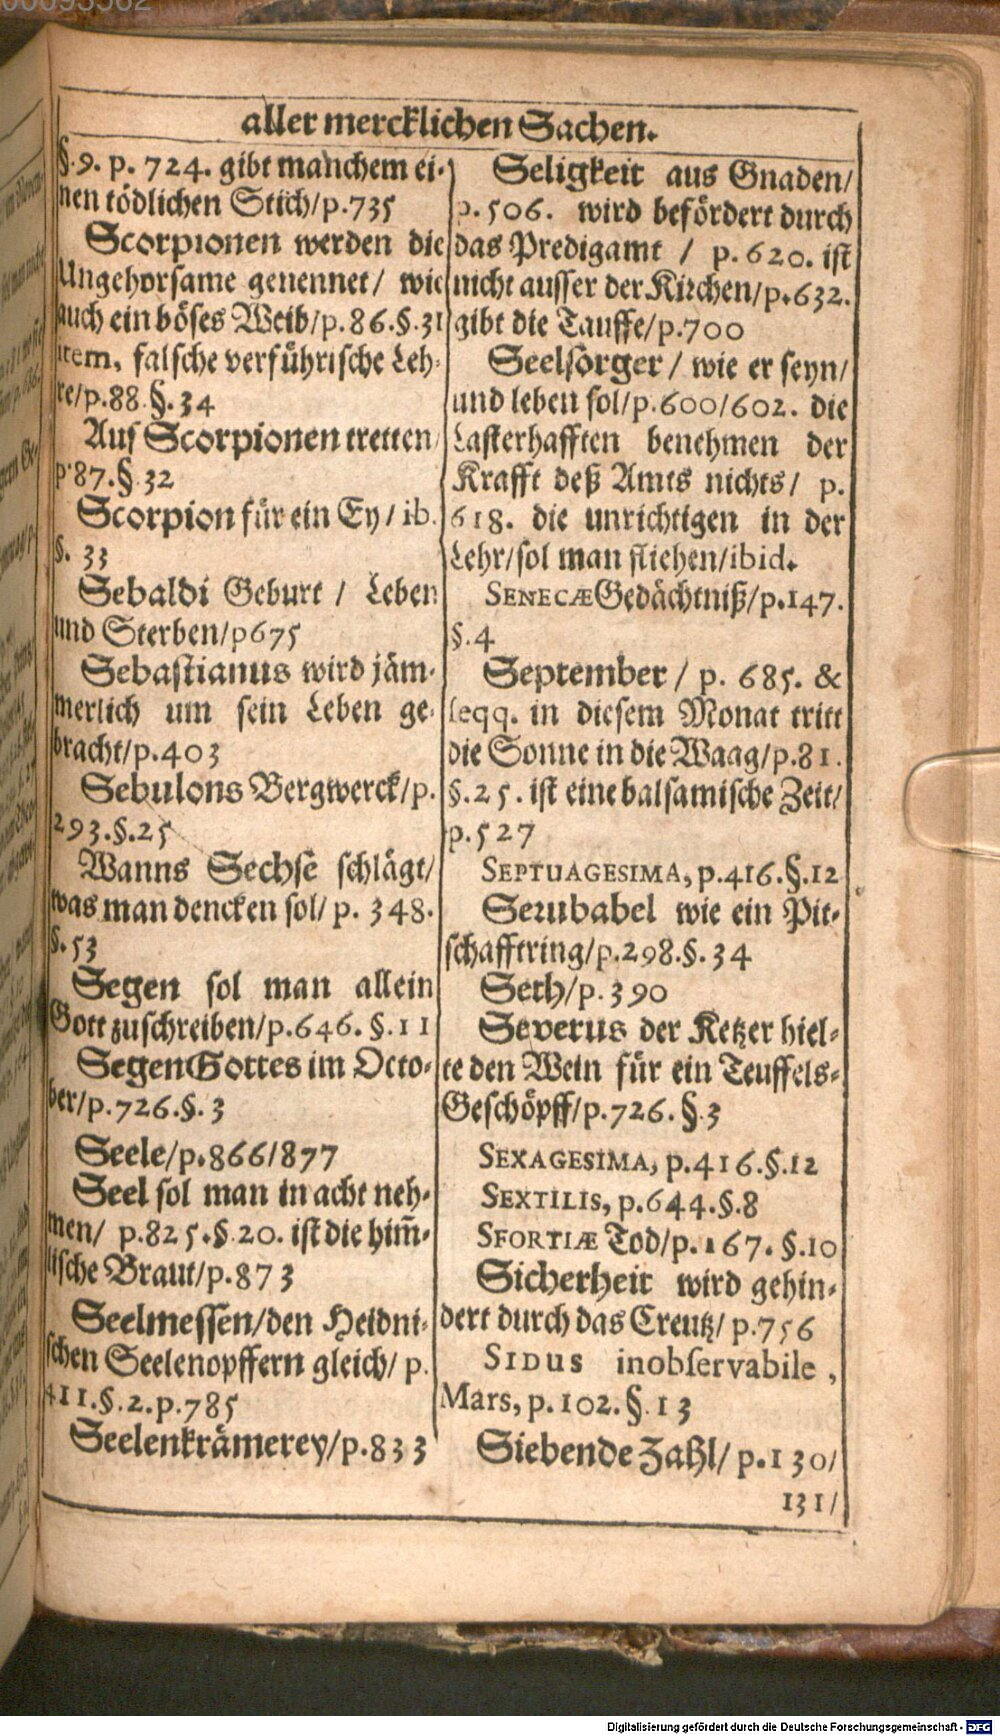 aller mercklichen Sachen.
§.9. p. 724. gibt manchem ei-
nen tödlichen Stich/p.735
Scorpionen werden die
Ungehorsame genennet/ wie
auch ein böses Weib/p.86.§.31
item, falsche verführische Leh-
re/p.88.§.34
Auf Scorpionen tretten/
p.87.§.32
Scorpion für ein Ey/ib.
§. 33
Sebaldi Geburt / Leben
und Sterben/p675
Sebastianus wird jäm-
merlich um sein Leben ge-
bracht/p.403
Sebulons Bergwerck/p.
293.§.25
Wanns Sechse schlägt/
was man dencken sol/ p. 348.
§.53
Segen sol man allein
Gott zuschreiben/p.646.§.11
Segen Gottes im Octo-
ber/p.726.§.3
Seele/p.866/877
Seel sol man in acht neh-
men/ p.825.§.20. ist die him̃-
lische Braut/p.873
Seelmessen/den Heidni-
schen Seelenopffern gleich/ p.
411.§.2.p.785
Seelenkrämerey/p.833
Seligkeit aus Gnaden/
p.506. wird befördert durch
das Predigamt / p.620. ist
nicht ausser der Kirchen/p.632.
gibt die Tauffe/p.700
Seelsorger / wie er seyn/
und leben sol/p.600/602. die
Lasterhafften benehmen der
Krafft deß Amts nichts/ p.
618. die unrichtigen in der
Lehr/sol man fliehen/ibid.
SENECÆ Gedächtniß/p.147.
§.4
September / p. 685. &
seqq. in diesem Monat tritt
die Sonne in die Waag/p.81.
§.25. ist eine balsamische Zeit/
p.527
SEPTUAGESIMA, p.416.§.12
Serubabel wie ein Pit-
schafftring/p.298.§.34
Seth/p.390
Severus der Ketzer hiel-
te den Wein für ein Teuffels-
Geschöpff/p.726.§.3
SEXAGESIMA, p.416.§.12
SEXTILIS, p.644.§.8
SFORTIÆ Tod/p.167.§.10
Sicherheit wird gehin-
dert durch das Creutz/ p.756
SIDUS inobservabile ,
Mars, p.102.§.13
Siebende Zahl/ p.130/
131/
Digitalisierung gefördert durch die Deutsche Forschungsgemeinschaft - DFG